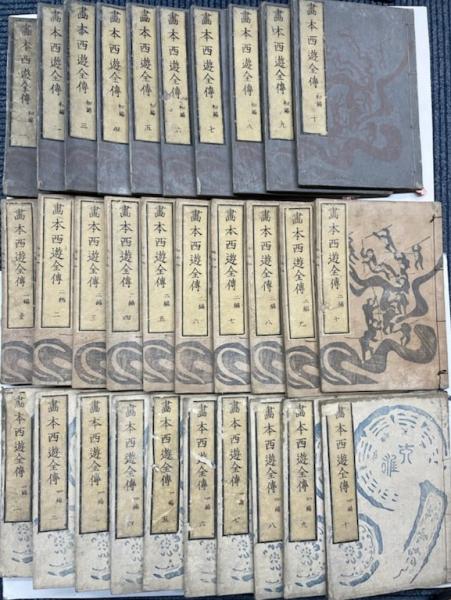 畵本西遊全傳 初編
畵本西遊全傳 初編
畵本西遊全傳 初編 三
畵本西遊全傳 初編 四
畵本西遊全傳 初編 五
畵本西遊全傳 初編 六
畵本西遊全傳 初編 七
畵本西遊全傳 初編 八
畵本西遊全傳 初編 九
畵本西遊全傳 初編 十
畵本西遊全傳 二編
畵本西遊全傳 二編 二
畵本西遊全傳 二編 三
畵本西遊全傳 二編 四
畵本西遊全傳 二編 五
畵本西遊全傳 二編 六
畵本西遊全傳 二編 七
畵本西遊全傳 二編 八
畵本西遊全傳 二編 九
畵本西遊全傳 二編 十
畵本西遊全傳 編
畵本西遊全傳 編
畵本西遊全傳 編
畵本西遊全傳 編 四
畵本西遊全傳 編 五
畵本西遊全傳 編 六
畵本西遊全傳 編 七
畵本西遊全傳 編 八
畵本西遊全傳 編 九
畵本西遊全傳 編 十